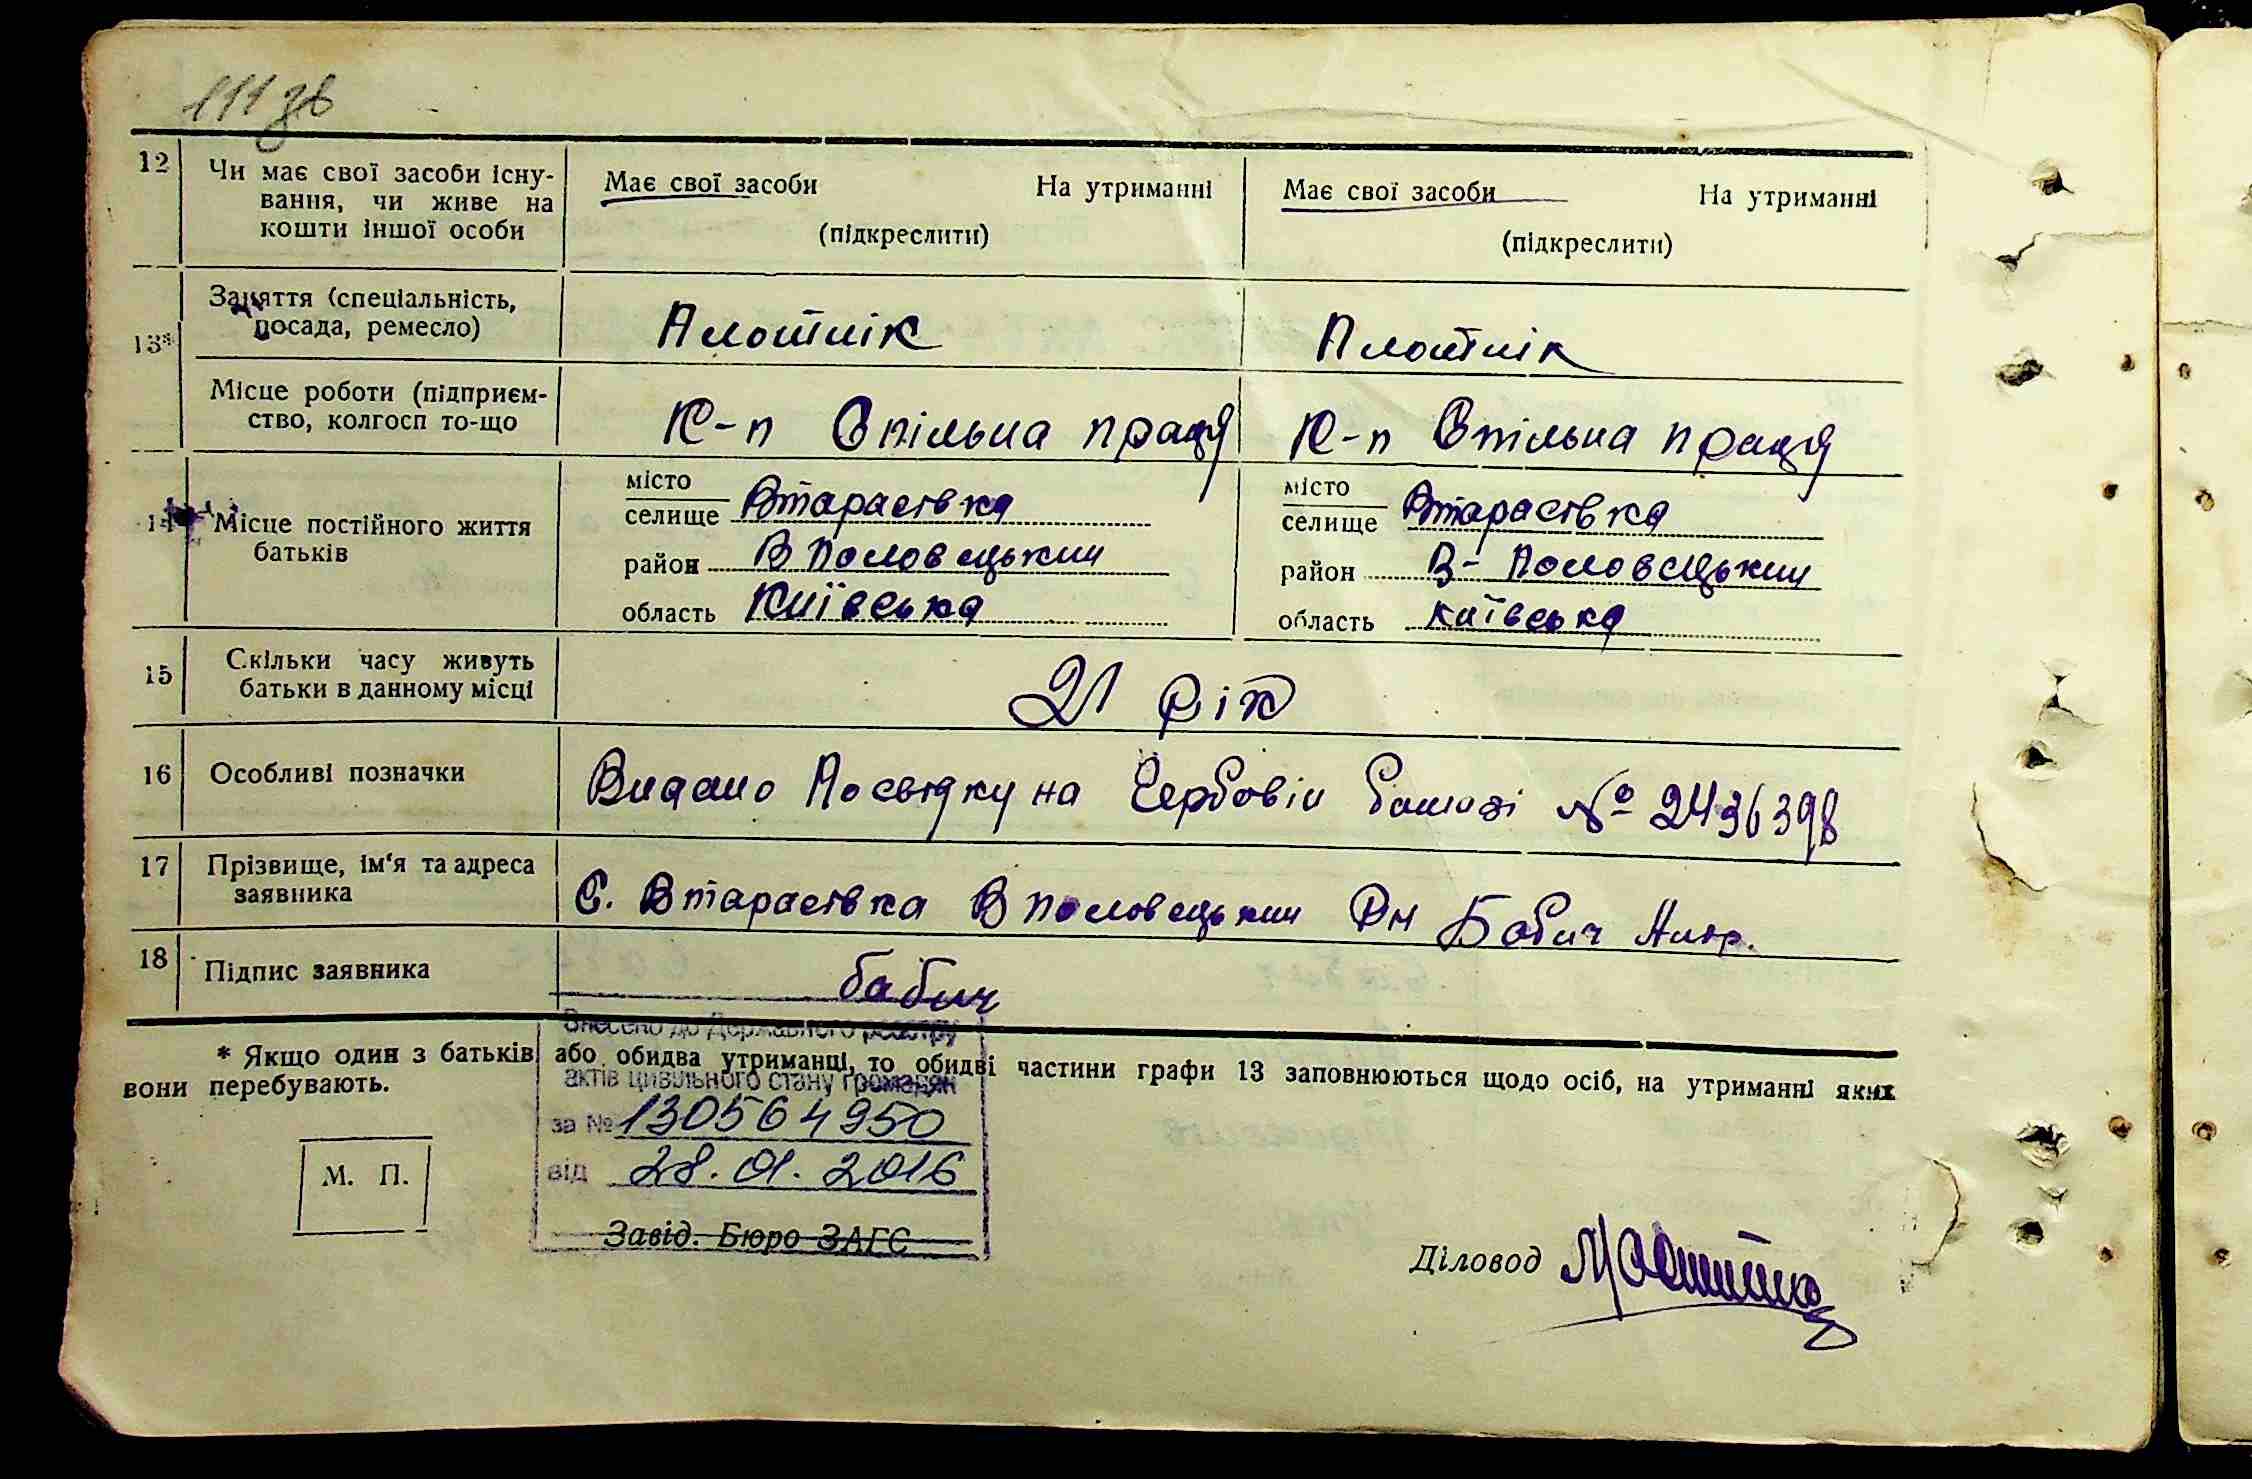 111 зв
12 Чи має свої засоби існу- Має свої засоби На утриманні Має свої засоби На утриманні
вання, чи живе на
кошти іншої особи (підкреслити) (підкреслити)
13* Заняття (спеціальність,
посада, ремесло) Плотнік Плотнік
Місце роботи (підприєм-
ство, колгосп то-що К-п Спільна праця К-п Спільна праця
14 Місце постійного життя
батьків
місто
селище Втарасівка
район В Половецький
область Київська
місто
селище Втарасівка
район В- Половецький
область Київська
15 Скільки часу живуть
батьки в данному місці 21 рік
16 Особливі позначки Видано Посвідку на Гербовім № 2436398
17 Прізвище, ім'я та адреса
заявника С. Втарасівка В Половецький Рн Бабич
18 Підпис заявника бабич
* Якщо один з батьків або обидва утриманці, то обидві частини графи 13 заповнюються щодо осіб, на утриманні яких
вони перебувають.
Внесено до Державного реєстру
актів цивільного стану громадян
за № 130564950
від 28.01.2016
М. П.
Завід. Бюро ЗАГС
Діловод